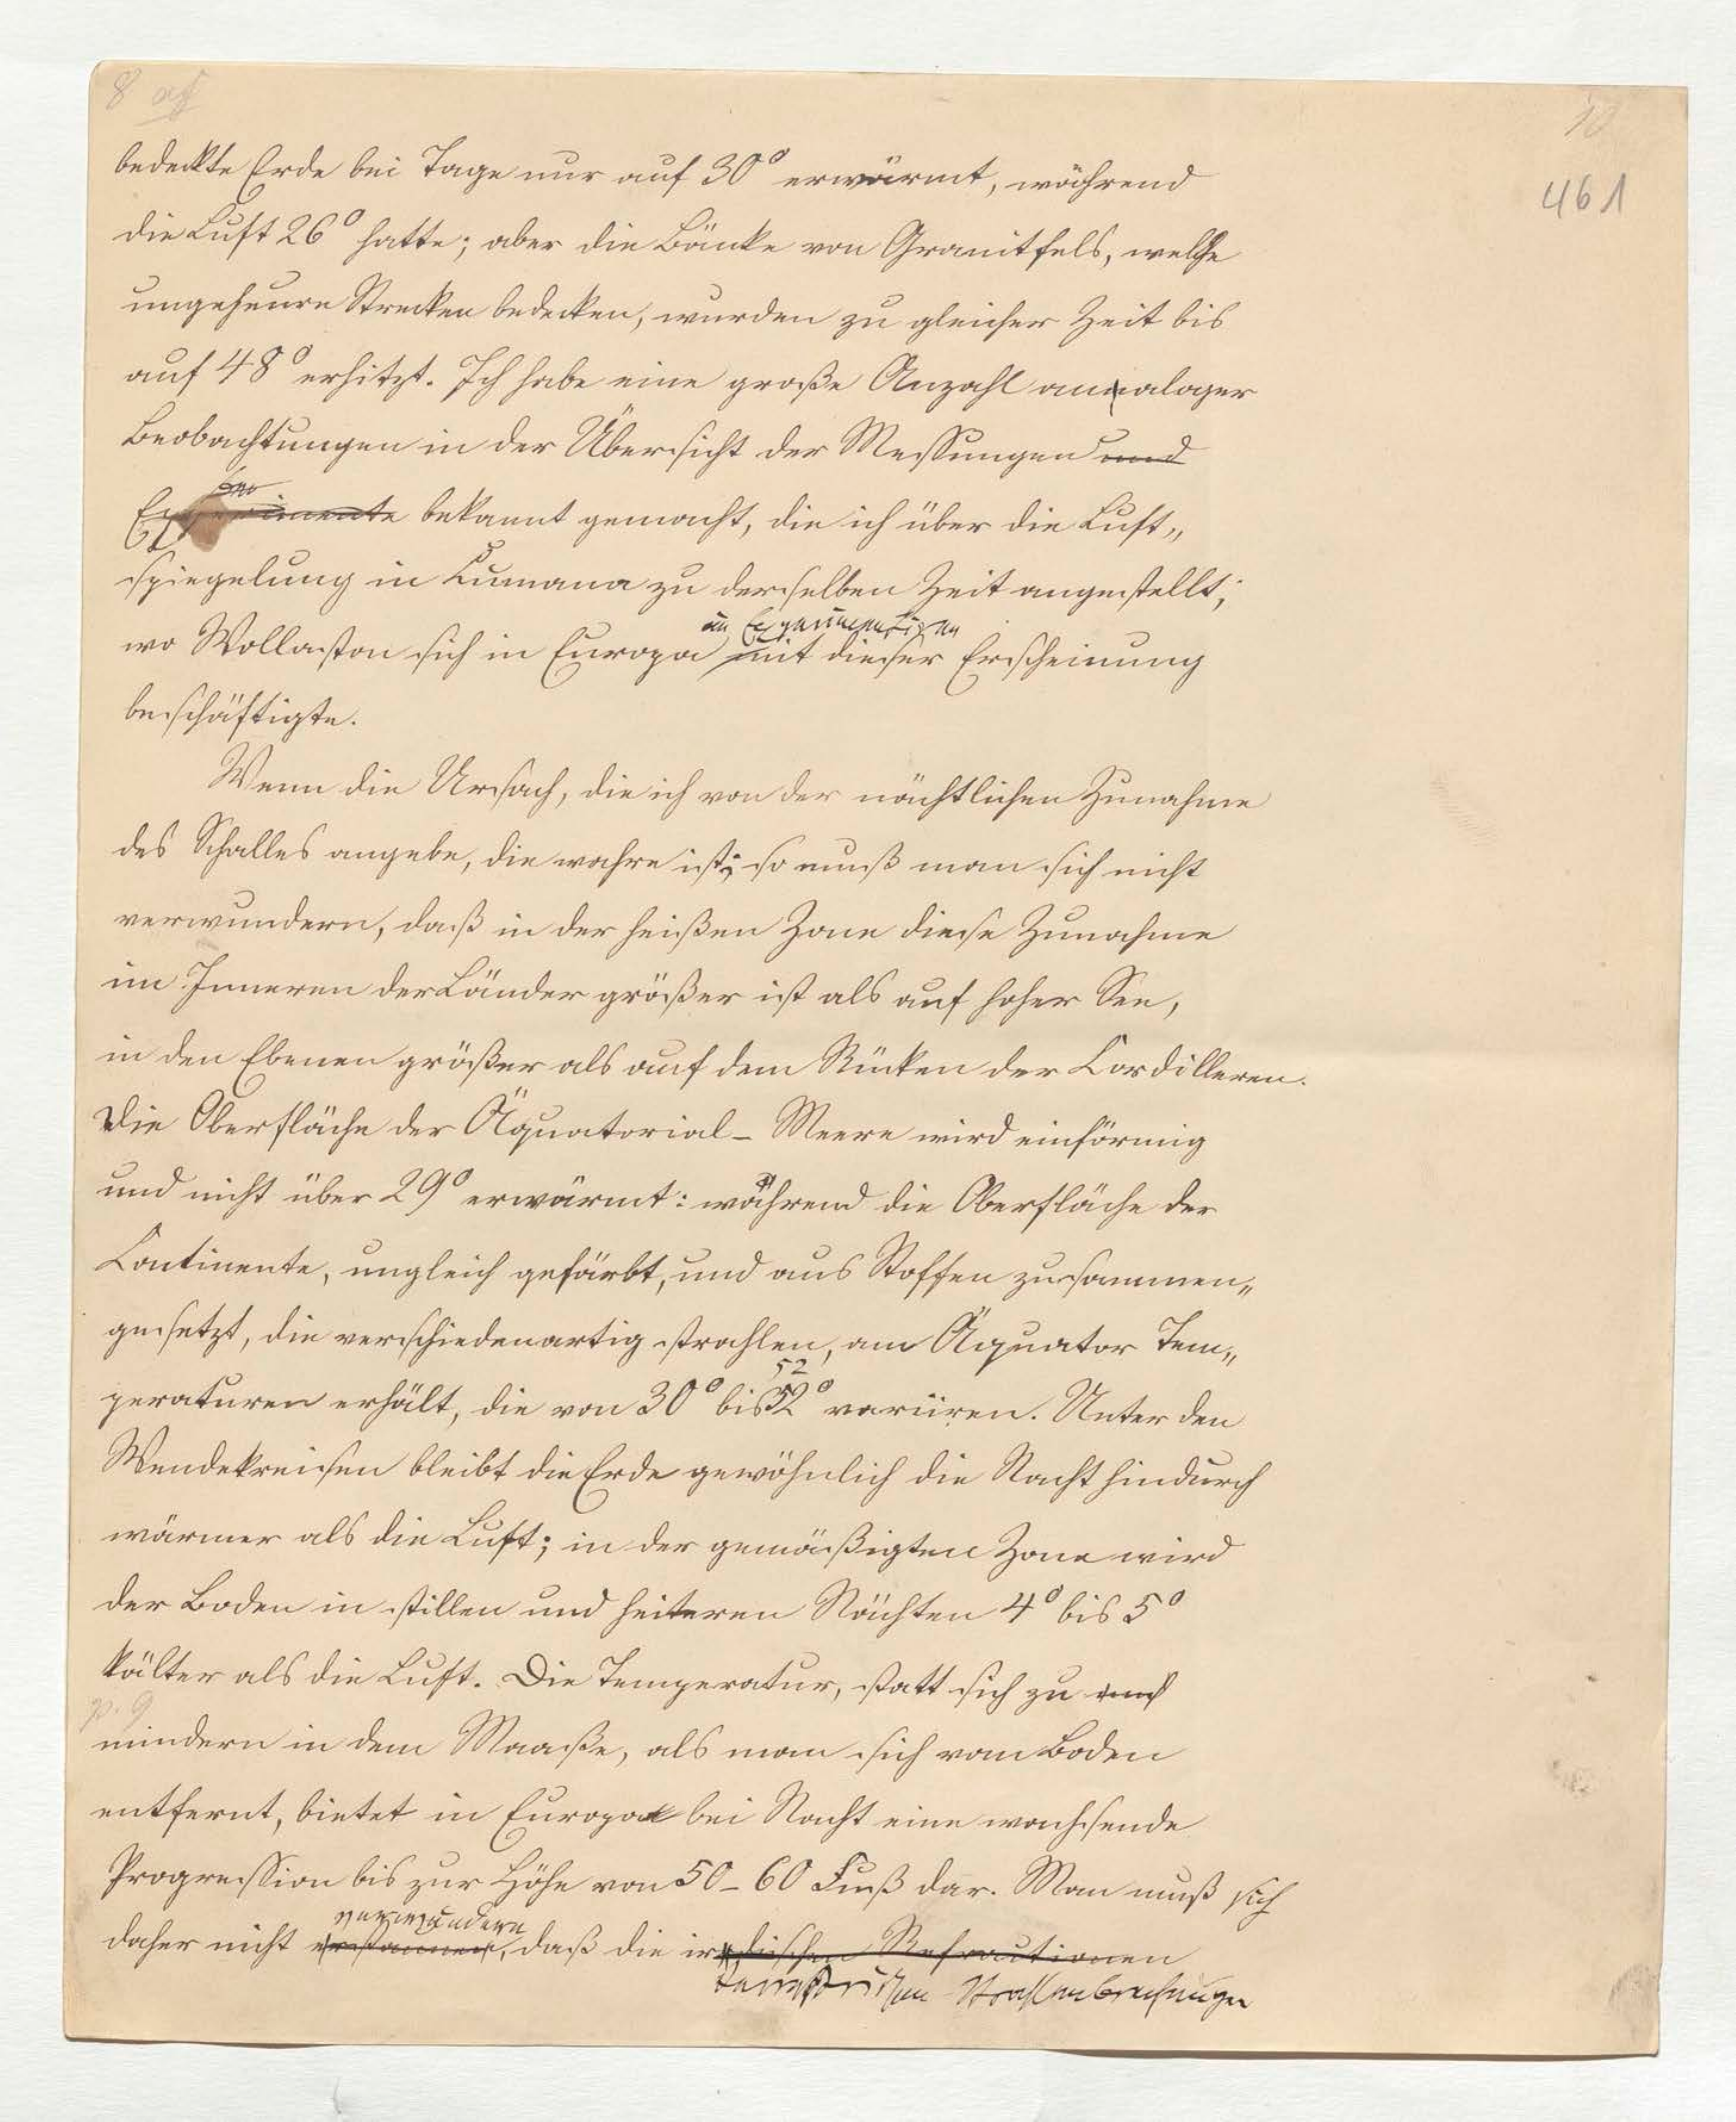 8
10
461
bedeckte Erde bei Tage nur auf 30° erwärmt, während
die Luft 26° hatte; aber die Bänke von Granitfels, welche
ungeheure Strecken bedecken, wurden zu gleicher Zeit bis
auf 48° erhitzt. Ich habe eine große Anzahl analoger
Beobachtungen in der Übersicht der Messungen und
Experimente bekannt gemacht, die ich über die Luft„
spiegelung in Cumana zu derselben Zeit angestellt,
im Experimentiren
wo Wollaston sich in Europa mit dieser Erscheinung
beschäftigte.
Wenn die Ursach, die ich von der nächtlichen Zunahme
des Schalles angebe, die wahre ist; so muß man sich nicht
verwundern, daß in der heißen Zone diese Zunahme
im Inneren der Länder größer ist als auf hoher See,
in den Ebenen größer als auf dem Rücken der Cordilleren.
Die Oberfläche der Äquatorial-Meere wird einförmig
und nicht über 29° erwärmt: während die Oberfläche der
Continente, ungleich gefärbt, und aus Stoffen zusammen„
gesetzt, die verschiedenartig strahlen, am Äquator Tem„
52
peraturen erhält, die von 30° bis 52° variiren. Unter den
Wendekreisen bleibt die Erde gewöhnlich die Nacht hindurch
wärmer als die Luft; in der gemäßigten Zone wird
der Boden in stillen und heiteren Nächten 4° bis 5°
kälter als die Luft. Die Temperatur, statt sich zu
p. 9
mindern in dem Maaße, als man sich vom Boden
entfernt, bietet in Europa bei Nacht eine wachsende
Progression bis zur Höhe von 50-60 Fuß dar. Man muß sich
verwundern
daher nicht erstaunen, daß die irdischen Refractionen
terrestrischen Strahlenbrechungen